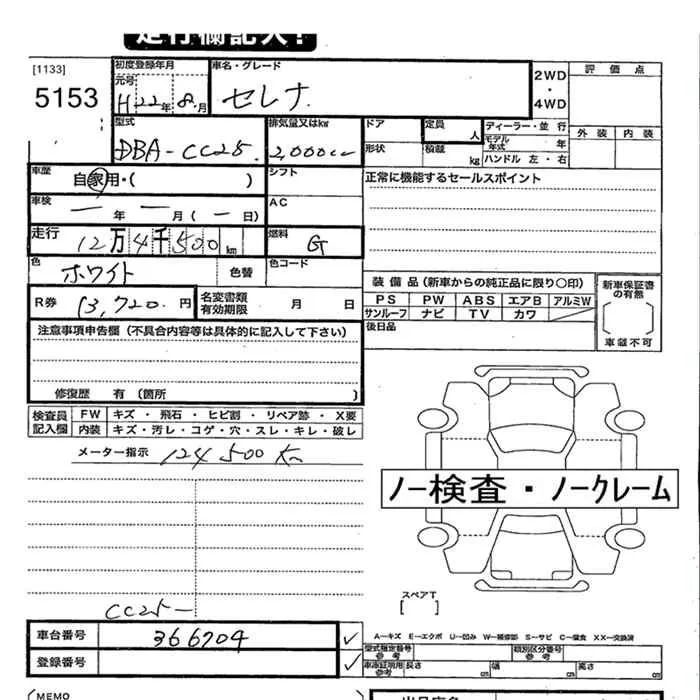 走行欄記入!
[1133]
5153
初度登録年月
元号
H22年8.月
車名・グレード
セレナ
2WD
・
4WD
評価点
外装 内装
型式
DBA-CC25.
排気量又はkg
2,000cc
ドア
形状
定員
人
積載
kg
ディーラー・並行
モデル年式 年
ハンドル 左・右
車歴
自家用・( )
シフト
AC
正常に機能するセールスポイント
車検
ー年ー月(ー日)
走行
12万4千500km
燃料
G
色
ホワイト
色替
色コード
装備品(新車からの純正品に限り〇印)
PS PW ABS エアB アルミW
サンルーフ ナビ TV カワ
後日品
新車保証書の有無
車載不可
R券
13,720.円
名変書類有効期限 月 日
注意事項申告欄(不具合内容等は具体的に記入して下さい)
修復歴 有(箇所 )
検査員記入欄
FW キズ・飛石・ヒビ割・リペア跡・X要
内装 キズ・汚レ・コゲ・穴・スレ・キレ・破レ
メーター指示 124500K
ノー検査・ノークレーム
スペアT
[ ]
CC25-
車台番号 366704 ✓
登録番号 ✓
A-キズ E-エクボ U-凹み W-補修跡 S-サビ C-腐食 XX-交換済
型式指定番号 参考
類別区分番号 参考
車庫証明用参考 長さ cm 幅 cm 高さ cm
(MEMO
出品店名